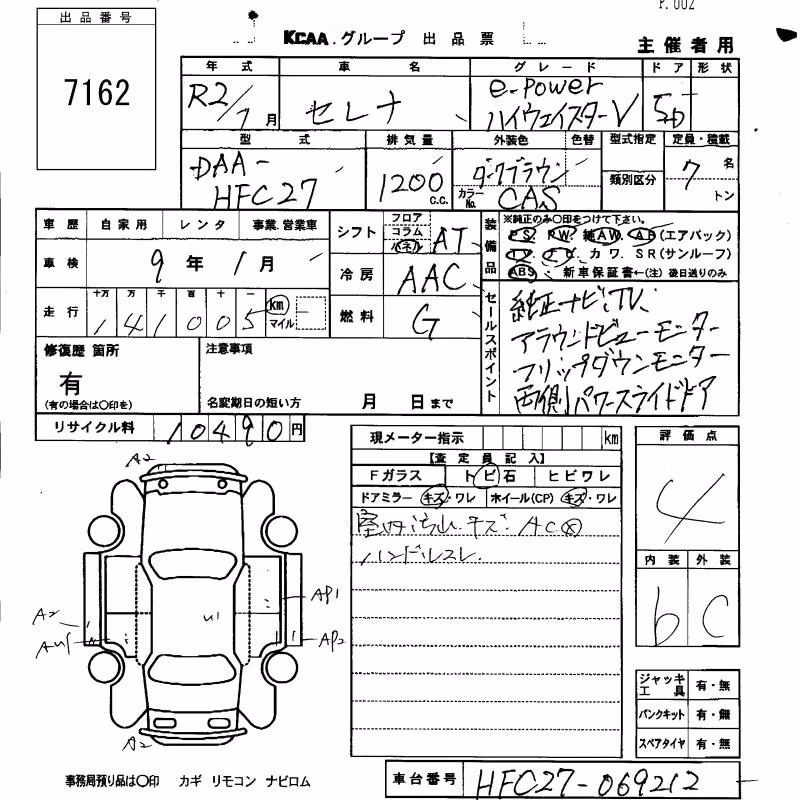 P. 002
出品番号
7162
KCAA.グループ 出品票
主催者用
年式 車名 グレード ドア 形状
R2/1月 セレナ e-POWER ハイウェイスターV 5D
型式 排気量 外装色 色替 型式指定 定員・積載
DAA-HFC27 1200 C.C. ダークブラウン 類別区分 7名
カラーNo. CAS トン
車歴 自家用 レンタ 事業.営業車
車検 9年1月
走行 十万 万 千 百 十 一
141005 km マイル
シフト フロア コラム パネル AT
冷房 AAC
燃料 G
装備品 ※純正のみ○印をつけて下さい。
PS. PW. 純AW. AB(エアバック)
TV. ナビ. カワ. SR(サンルーフ)
ABS. 新車保証書←(注)後日送りのみ
セールスポイント
純正ナビ、TV、
アラウンドビューモニター
フリップダウンモニター
両側パワースライドドア
修復歴 箇所
有
(有の場合は○印を)
注意事項
名変期日の短い方 月 日まで
リサイクル料 10490円
現メーター指示 km
【査定員記入】
Fガラス トビ石 ヒビワレ
ドアミラー キズ・ワレ ホイール(CP) キズ・ワレ
室内汚れ、キズ、AC
ハンドルスレ
評価点
4
内装 外装
b C
A2
AP1
A2
U1
AP2
A2
ジャッキ工具 有・無
パンクキット 有・無
スペアタイヤ 有・無
事務局預り品は○印 カギ リモコン ナビロム
車台番号 HFC27-069212